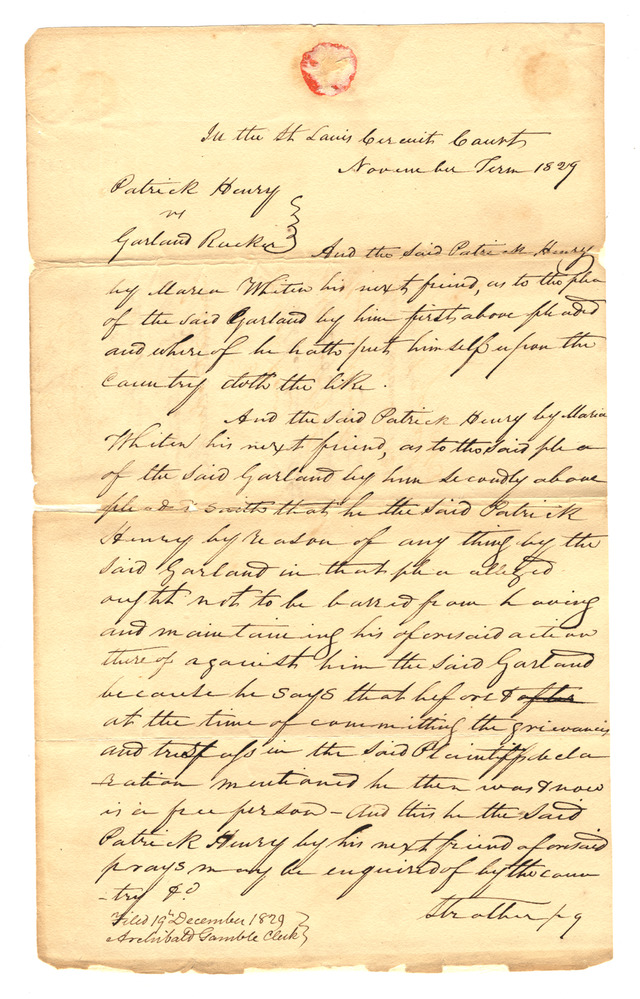 In the St Louis Circuit Court
November Term 1829
Patrick Henry
vs
Garland Rucker
And the said Patrick Henry
by Maria Whiten his next friend, as to the plea
of the said Garland by him first above pleaded
and whereof he hath put himself upon the
country doth the like.
And the said Patrick Henry by Maria
Whiten his next friend, as to the said plea
of the said Garland by him secondly above
pleaded saith that he the said Patrick
Henry by reason of any thing by the
said Garland in that plea alleged
ought not to be barred from having
and maintaining his aforesaid action
thereof against him the said Garland
because he says that before & after
at the time of committing the grievances
and trespass in the said Plaintiffs decla
ration mentioned he then was & now
is a free person - And this he the said
Patrick Henry by his next friend aforesaid
prays may be enquired of by the coun
-try &c
Strother pq
Filed 19th December 1829
Archibald Gamble Clerk